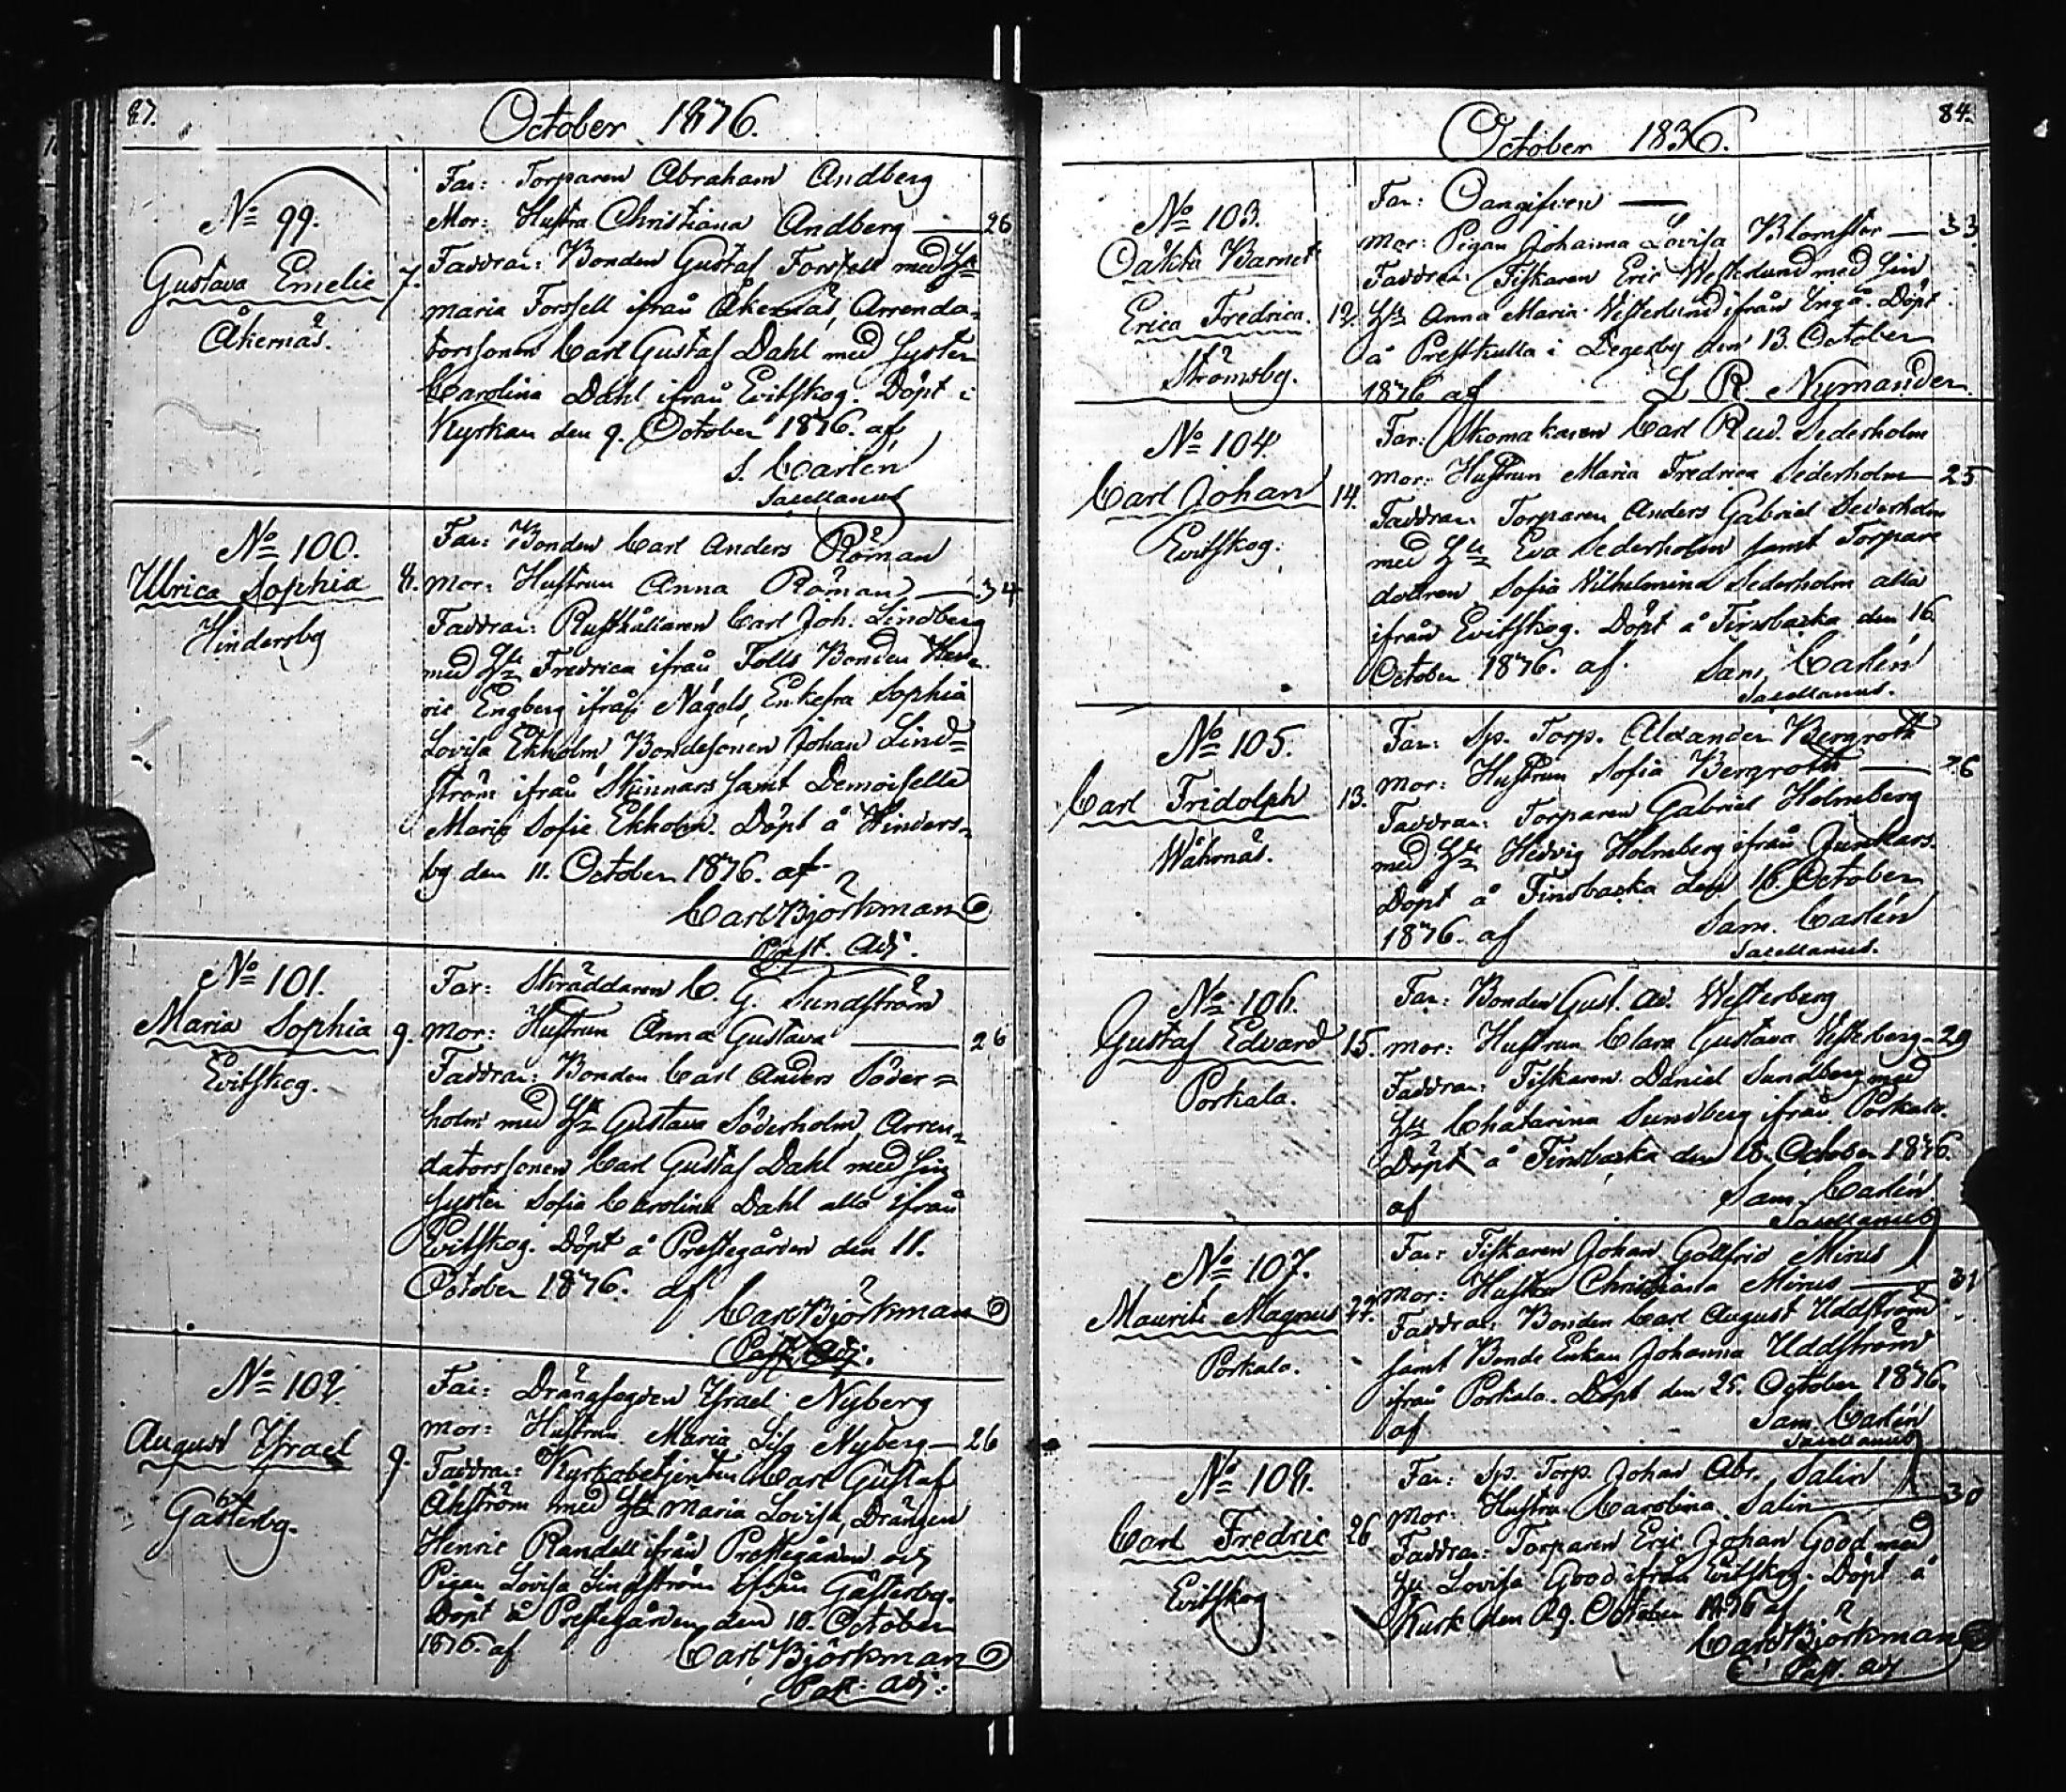 87.
October 1876.
No 99.
Gustava Emelie
Åkernäs.
7.
Far: Torparen Abraham Andberg
Mor: Hustru Christiana Andberg — 26
Faddrar: Bonden Gustaf Forssell med Hu
Maria Forssell ifrån Åkernäs, Arrenda-
torssonen Carl Gustaf Dahl med Syster
Carolina Dahl ifrån Evitskog. Döpt i
Kyrkan den 9. October 1876. af
S. Carlén
Sacellanus
No 100.
Ulrica Sophia
Hindersby
8.
Far: Bonden Carl Anders Röman
Mor: Hustrun Anna Röman — 34
Faddrar: Rusthållaren Carl Joh: Lindberg
med Hu Fredrica ifrån Tolls Bonden Hen-
ric Engberg ifrån Nägels, Enkefru Sophia
Lovisa Ekholm, Bondesonen Johan Lind=
ström ifrån Skinnars samt Demoiselle
Maria Sofie Ekholm. Döpt å Hinders-
by den 11. October 1876. af
Carl Björkman
Past. Adj.
No 101.
Maria Sophia
Evitskog.
9.
Far: Skräddaren C. G. Sundström
Mor: Hustrun Anna Gustava — 26
Faddrar: Bonden Carl Anders Söder=
holm med Hu Gustava Söderholm, Arren-
datorssonen Carl Gustaf Dahl med sin
Syster Sofia Carolina Dahl alla ifrån
Evitskog. Döpt å Prestegården den 11.
October 1876. af
Carl Björkman
Past. Adj.
No 102.
August Israel
Gästerby.
9.
Far: Drängfogden Israel Nyberg
Mor: Hustrun Maria Lisa Nyberg — 26
Faddrar: Kyrkobetjenten Carl Gustaf
Åhström med Hu Maria Lovisa, Drängen
Henric Randell ifrån Prestegården och
Pigan Lovisa Lindström ifrån Gästerby.
Döpt å Prestegården den 10. October
1876. af
Carl Björkman
Past. Adj.
84.
October 1836.
No 103.
Oäkta Barnet
Erica Fredrica.
Strömsby.
12.
Far: Oangifven —
Mor: Pigan Johanna Lovisa Blomster — 33
Faddrar: Fiskaren Eric Westerlund med sin
Hu Anna Maria Westerlund ifrån Ingå. Döpt
å Prestkulla i Degerby den 13. October
1876 af L. R. Nymander.
No 104.
Carl Johan
Evitskog.
14.
Far: Skomakaren Carl Rud. Sederholm
Mor: Hustrun Maria Fredrica Sederholm — 25
Faddrar: Torparen Anders Gabriel Sederholm
med Hu Eva Sederholm samt Torpare
dottren Sofia Wilhelmina Sederholm alla
ifrån Evitskog. Döpt å Finsbacka den 16
October 1876. af Sam. Carlén
Sacellanus.
No 105.
Carl Fridolph
Wåhrnäs.
13.
Far: Sp. Torp. Alexander Bergroth
Mor: Hustrun Sofia Bergroth — 26
Faddrar: Torparen Gabriel Holmberg
med Hu Hedvig Holmberg ifrån Junkars.
Döpt å Finsbacka den 16. October
1876. af Sam. Carlén
Sacellanus.
No 106.
Gustaf Edvard
Porkala.
15.
Far: Bonden Gust. Ad. Westerberg
Mor: Hustrun Clara Gustava Westerberg — 29
Faddrar: Fiskaren Daniel Sundberg med
Hu Chatarina Sundberg ifrån Porkala.
Döpt å Finsbacka den 18. October 1876.
af Sam. Carlén.
Sacellanus
No 107.
Maurits Magnus
Porkala.
22.
Far: Fiskaren Johan Gottfrid Mirus
Mor: Hustru Christiana Mirus — 31
Faddrar: Bonden Carl August Uddström
samt Bonde Enkan Johanna Uddström
ifrån Porkala. Döpt den 25. October 1876.
af Sam. Carlén
Sacellanus
No 108.
Carl Fredric
Evitskog
26
Far: Sp. Torp. Johan Abr. Salin
Mor: Hustru Carolina Salin — 30
Faddrar: Torparen Eric Johan Good med
Hu Lovisa Good ifrån Evitskog. Döpt å
Kurk den 29. October 1876 af
Carl Björkman
Past. Adj